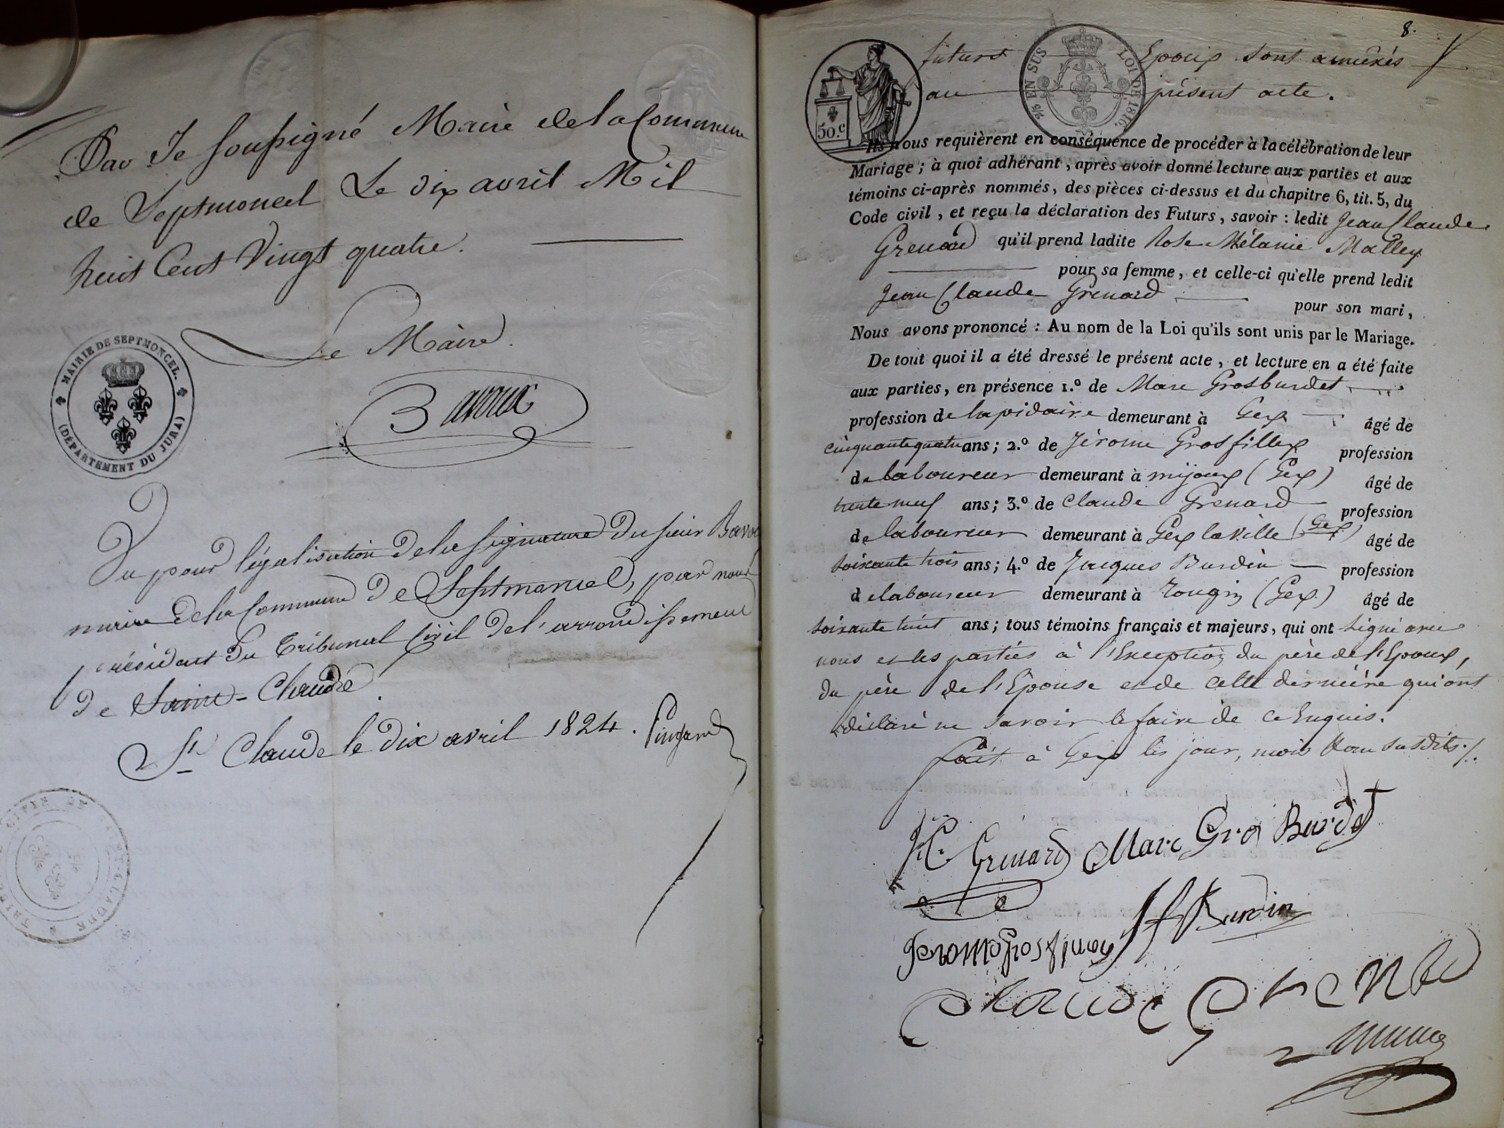 Par Je soussigné Maire de la Commune
de Septmoncel Le dix avril Mil
huit Cent Vingt quatre.
Le Maire.
Bavoux
MAIRIE DE SEPTMONCEL.
(DÉPARTEMENT DU JURA)
Vu pour légalisation de la signature du sieur Bavoux
maire de la Commune de Septmoncel, par nous
président du Tribunal Civil de l'arrondissement
de Saint-Claude.
St Claude le dix avril 1824.
8.
futurs Epoux sont annexés
au présent acte.
50.c
EN SUS
LOI DE 1816.
Ils nous requièrent en conséquence de procéder à la célébration de leur
Mariage ; à quoi adhérant, après avoir donné lecture aux parties et aux
témoins ci-après nommés, des pièces ci-dessus et du chapitre 6, tit. 5, du
Code civil, et reçu la déclaration des Futurs, savoir : ledit Jean Claude
Grenard qu'il prend ladite Rose Mélanie Malley
pour sa femme, et celle-ci qu'elle prend ledit
Jean Claude Grenard pour son mari,
Nous avons prononcé : Au nom de la Loi qu'ils sont unis par le Mariage.
De tout quoi il a été dressé le présent acte, et lecture en a été faite
aux parties, en présence 1.º de Marc Grosburdet
profession de lapidaire demeurant à Gex âgé de
cinquante quatre ans; 2.º de Jérome Grosfilley profession
de laboureur demeurant à mijoux (Gex) âgé de
trente neuf ans; 3.º de Claude Grenard profession
de laboureur demeurant à Gex la ville (Gex) âgé de
soixante trois ans; 4.º de Jacques Burdin profession
de laboureur demeurant à Tougin (Gex) âgé de
soixante huit ans; tous témoins français et majeurs, qui ont signé avec
nous et les parties à l'Exception du père de l'Epoux,
du père de l'Epouse et de cette dernière qui ont
déclaré ne savoir le faire de ce Enquis.
fait à Gex les jour, mois et an susdits./.
Grenard Marc Gro Burdet
Burdin
Claude Grenard